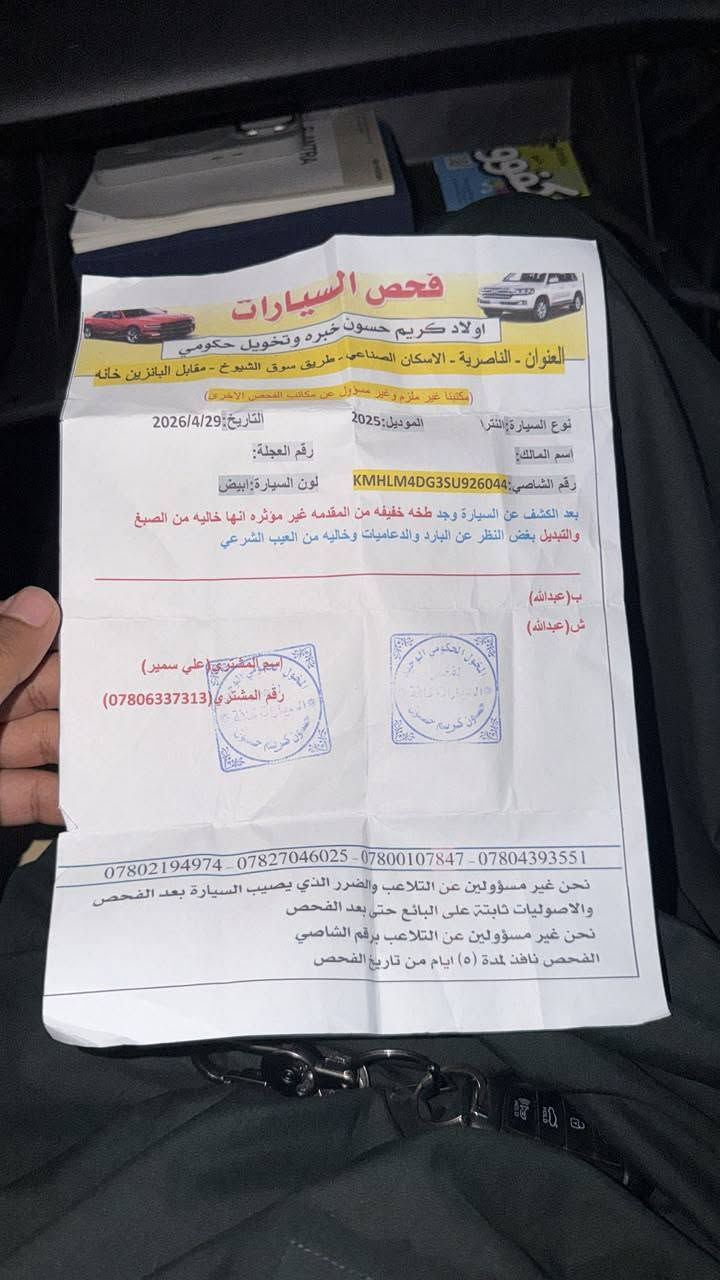 ELANTRA
كفوو
فحص السيارات
اولاد كريم حسون خبره وتخويل حكومي
العنوان - الناصرية - الاسكان الصناعي - طريق سوق الشيوخ - مقابل البانزين خانه
(مكتبنا غير ملزم وغير مسؤول عن مكاتب الفحص الاخرى)
نوع السيارة:النترا الموديل:2025 التاريخ:2026/4/29
اسم المالك: رقم العجلة:
رقم الشاصي:KMHLM4DG3SU926044 لون السيارة:ابيض
بعد الكشف عن السيارة وجد طخه خفيفه من المقدمه غير موثره انها خاليه من الصبغ
والتبديل بغض النظر عن البارد والدعاميات وخاليه من العيب الشرعي
ب(عبدالله)
ش(عبدالله)
اسم المشتري(علي سمير)
رقم المشتري(07806337313)
حسون كريم حسون
07802194974 - 07827046025 - 07800107847 - 07804393551
نحن غير مسؤولين عن التلاعب والضرر الذي يصيب السيارة بعد الفحص
والاصوليات ثابتة على البائع حتى بعد الفحص
نحن غير مسؤولين عن التلاعب برقم الشاصي
الفحص نافذ لمدة (٥) ايام من تاريخ الفحص
HOLD
HOLD